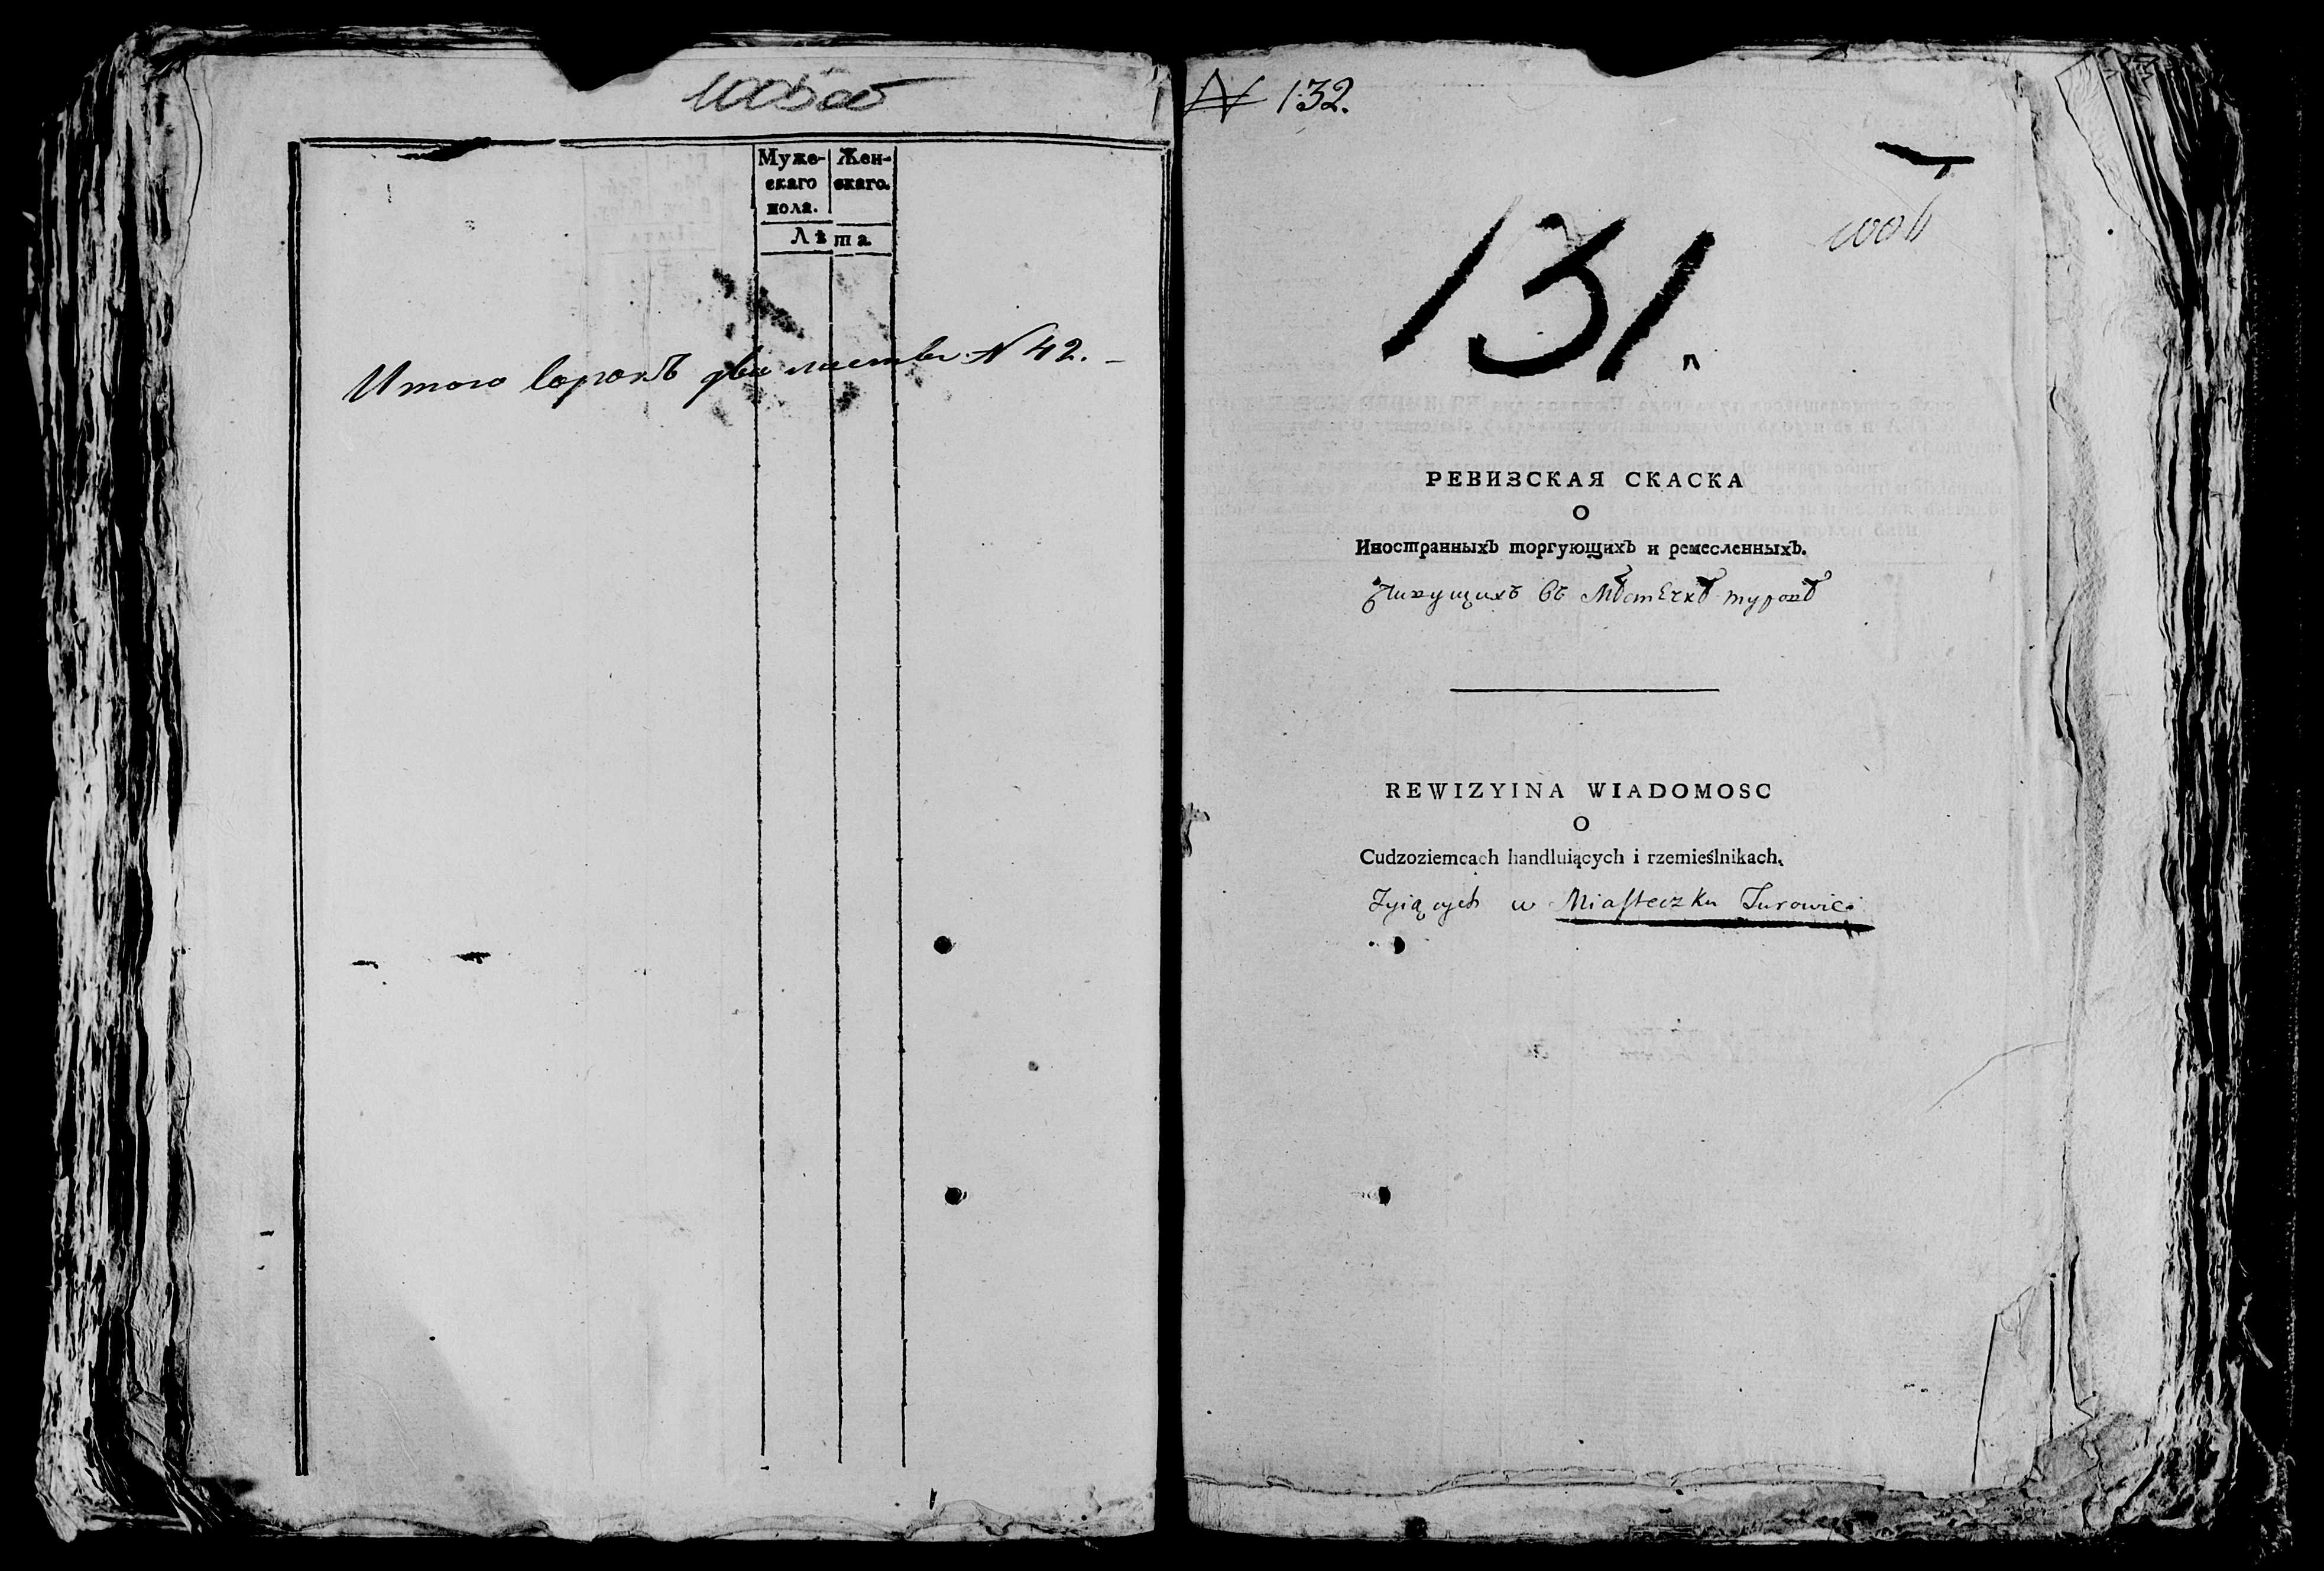 Муже-
скаго
пола.
Жен-
скаго.
Лѣта
Итого сорокъ два листа N 42.
N 132.
131.
1006
РЕВИЗСКАЯ СКАСКА
О
Иностранныхъ торгующихъ и ремесленныхъ.
въ Мѣстечкѣ
REWIZYINA WIADOMOSC
O
Cudzoziemcach handluiących i rzemieślnikach.
Zyiących w Miasteczku Turowie